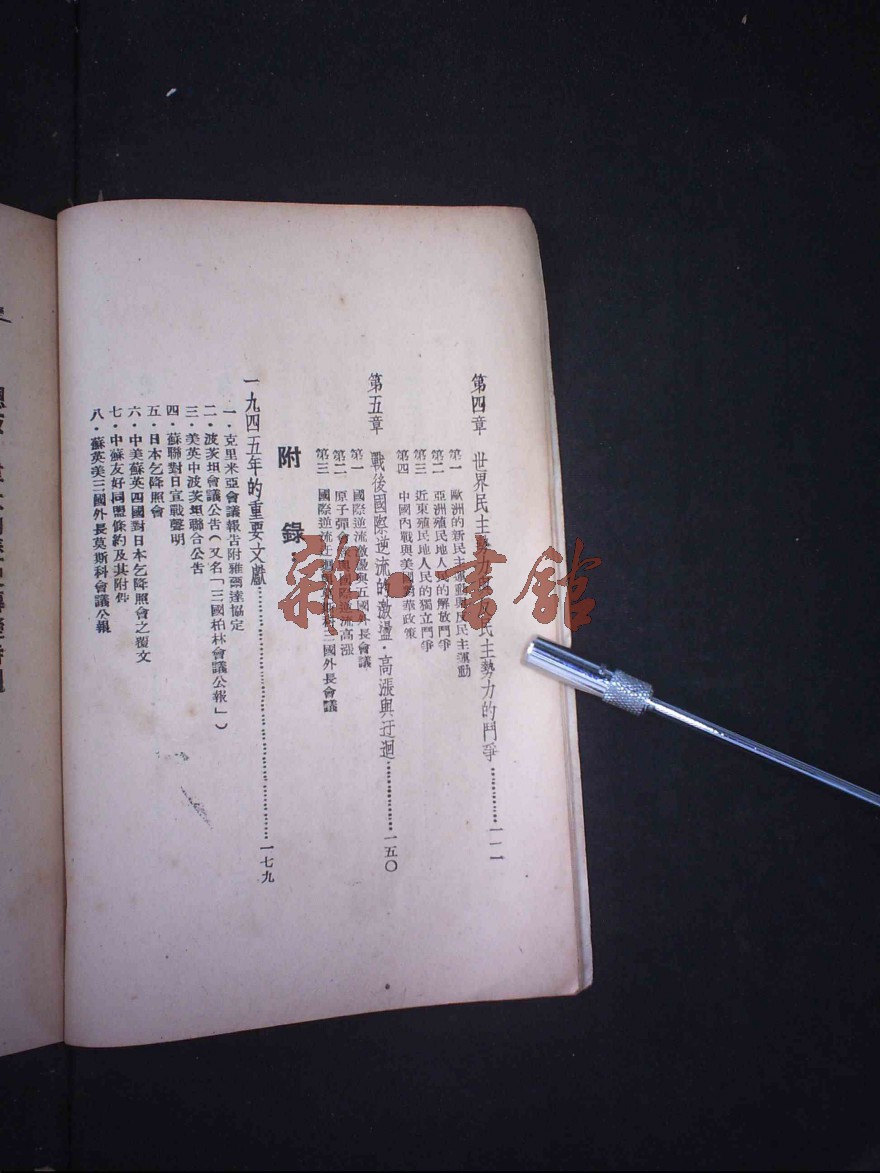 第四章　世界民主勢力與反民主勢力的鬥爭…………一一一
第一　歐洲的新民主運動與反民主運動
第二　亞洲殖民地人民的解放鬥爭
第三　近東殖民地人民的獨立鬥爭
第四　中國內戰與美國對華政策
第五章　戰後國際逆流的激盪・高漲與迂迴…………一五〇
第一　國際逆流激盪與五國外長會議
第二　原子彈 與國際逆流高漲
第三　國際逆流迂迴 三國外長會議
附　錄
一九四五年的重要文獻…………一七九
一・克里米亞會議報告附雅爾達協定
二・波茨坦會議公告（又名「三國柏林會議公報」）
三・美英中波茨坦聯合公告
四・蘇聯對日宣戰聲明
五・日本乞降照會
六・中美蘇英四國對日本乞降照會之覆文
七・中蘇友好同盟條約及其附件
八・蘇英美三國外長莫斯科會議公報
雜・書館